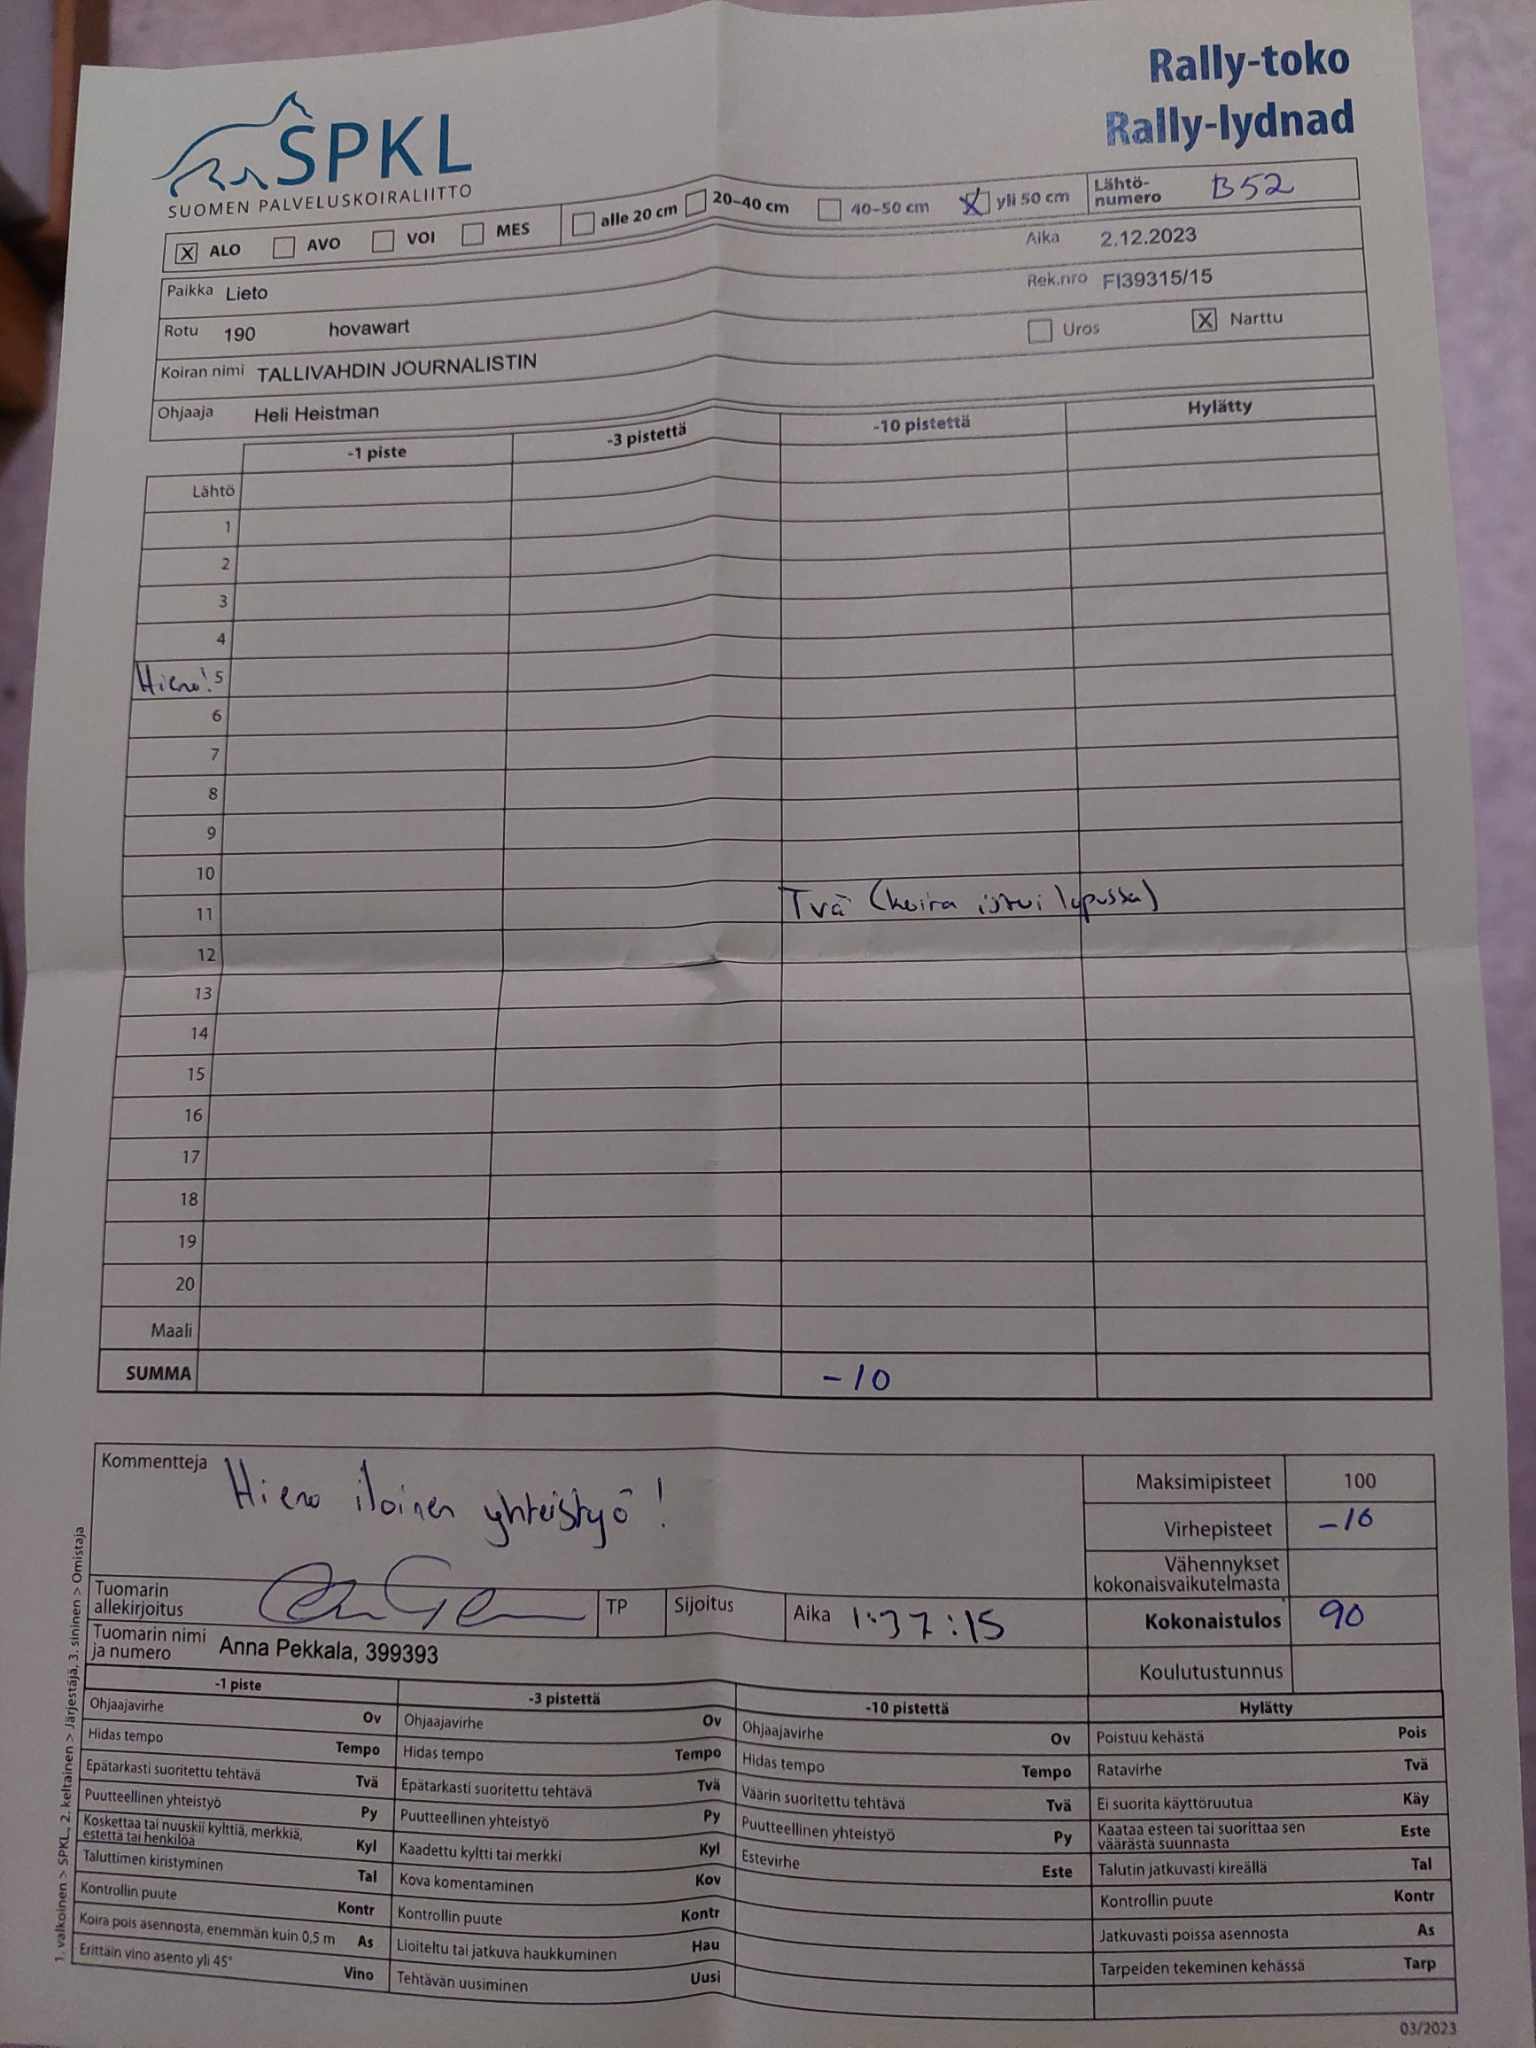 Rally-toko
Rally-lydnad
SPKL
SUOMEN PALVELUSKOIRALIITTO
X ALO AVO VOI MES alle 20 cm 20–40 cm 40–50 cm X yli 50 cm Lähtö-numero B52
Paikka Lieto Aika 2.12.2023
Rotu 190 hovawart Rek.nro FI39315/15
Koiran nimi TALLIVAHDIN JOURNALISTIN Uros X Narttu
Ohjaaja Heli Heistman
-1 piste -3 pistettä -10 pistettä Hylätty
Lähtö
1
2
3
4
Hieno! 5
6
7
8
9
10
11 Tvä (koira istui lopussa)
12
13
14
15
16
17
18
19
20
Maali
SUMMA -10
Kommentteja Hieno iloinen yhteistyö!
Maksimipisteet 100
Virhepisteet -10
Vähennykset kokonaisvaikutelmasta
Tuomarin allekirjoitus TP Sijoitus Aika 1:37:15 Kokonaistulos 90
Tuomarin nimi ja numero Anna Pekkala, 399393 Koulutustunnus
-1 piste -3 pistettä -10 pistettä Hylätty
Ohjaajavirhe Ov Ohjaajavirhe Ov Ohjaajavirhe Ov Poistuu kehästä Pois
Hidas tempo Tempo Hidas tempo Tempo Hidas tempo Tempo Ratavirhe Tvä
Epätarkasti suoritettu tehtävä Tvä Epätarkasti suoritettu tehtävä Tvä Väärin suoritettu tehtävä Tvä Ei suorita käyttöruutua Käy
Puutteellinen yhteistyö Py Puutteellinen yhteistyö Py Puutteellinen yhteistyö Py Kaataa esteen tai suorittaa sen väärästä suunnasta Este
Koskettaa tai nuuskii kylttiä, merkkiä, estettä tai henkilöä Kyl Kaadettu kyltti tai merkki Kyl Estevirhe Este Talutin jatkuvasti kireällä Tal
Taluttimen kiristyminen Tal Kova komentaminen Kov Kontrollin puute Kontr
Kontrollin puute Kontr Kontrollin puute Kontr Jatkuvasti poissa asennosta As
Koira pois asennosta, enemmän kuin 0,5 m As Lioiteltu tai jatkuva haukkuminen Hau Tarpeiden tekeminen kehässä Tarp
Erittäin vino asento yli 45° Vino Tehtävän uusiminen Uusi
1. valkoinen > SPKL, 2. keltainen > Järjestäjä, 3. sininen > Omistaja
03/2023